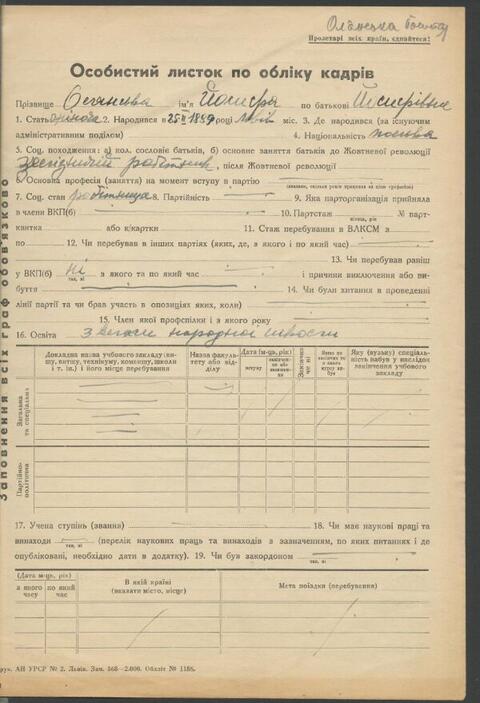 Пролетарі всіх країн, єднайтеся!
Особистий листок по обліку кадрів
Прізвище ім'я по батькові
1. Стать 2. Народився в 25 1889 році Львів міс. 3. Де народився (за існуючим
адміністративним поділом) 4. Національність
5. Соц. походження: а) кол. сословіє батьків, б) основне заняття батьків до Жовтневої революції
робітник, після Жовтневої революції
6. Основна професія (заняття) на момент вступу в партію
(вказати, скільки років працював на цією професією)
7. Соц. стан робітниця 8. Партійність 9. Яка парторганізація прийняла
в члени ВКП(б) 10. Партстаж № парт-
місяць, рік
квитка або к/картки 11. Стаж перебування в ВЛКСМ з
по 12. Чи перебував в інших партіях (яких, де, з якого і по який час)
13. Чи перебував раніш
у ВКП(б) ні з якого та по який час і причини виключення або ви-
так, ні
буття 14. Чи були хитання в проведенні
лінії партії та чи брав участь в опозиціях яких, коли)
15. Член якої профспілки і з якого року
16. Освіта народної
Заповнення всіх граф обов'язково
Докладна назва учбового закладу (ви-
шу, втишу, технікуму, комвишу, школи
і т. ін.) і його місце перебування
Назва факуль-
тету або від-
ділу
Дата (м-ць, рік)
вступу
Закінчив
чи ні
Яку (вузьку) спеціаль-
ність набув у наслідок
закінчення учбового
закладу
Загальна
та спеціальна
Партійно-
політична
17. Учена ступінь (звання) 18. Чи має наукові праці та
винаходи (перелік наукових праць та винаходів з зазначенням, по яких питаннях і де
так, ні
опубліковані, необхідно дати в додатку). 19. Чи був закордоном
так, ні
(Дата м-ць, рік)
з якого
часу
по який
час
В якій країні
(вказати місто, місце)
Мета поїздки (перебування)
друк. АН УРСР № 2. Львів. Зам. 568—2.000. Обліт № 1188.